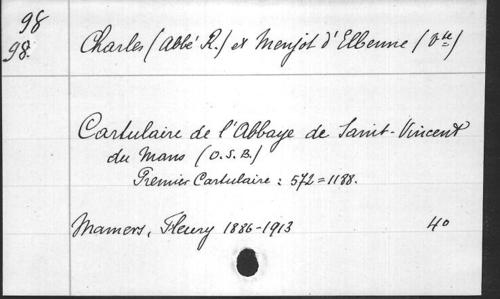 98
98. Charles (Abbé R.) et Menjot d'Elbenne (Vte)
Cartulaire de l'Abbaye de Saint-Vincent
du Mans (O.S.B.)
Premier Cartulaire : 572=1188.
Mamers, Fleury 1886-1913 4o